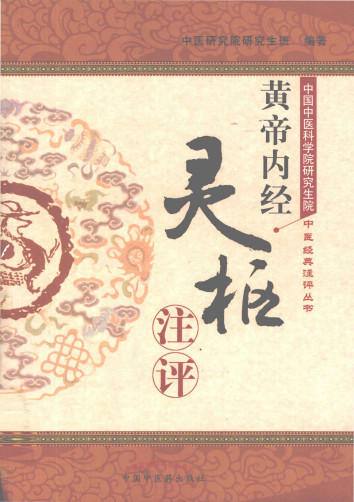 中医研究院研究生班 编著
中国中医科学院研究生院
中医经典注评丛书
黄帝内经
灵枢
注评
中国中医药出版社